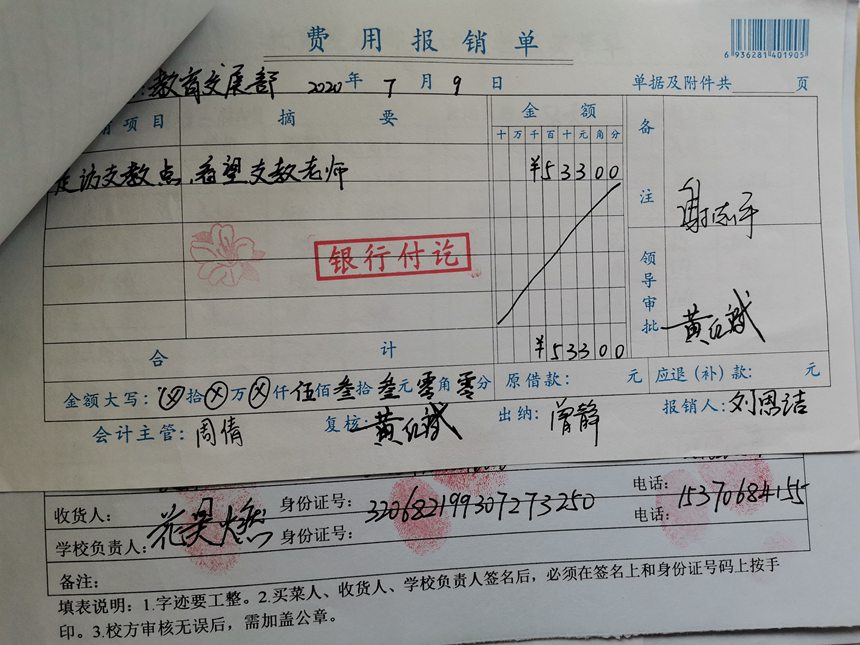 费用报销单
6 936281 401905
教育发展部 2020年7月9日 单据及附件共 页
项目 摘要 金额 备注
十万千百十元角分
走访支教点、看望支教老师 ¥53300
银行付讫
领导审批
合计 ¥53300
金额大写:⊗拾⊗万⊗仟伍佰叁拾叁元零角零分 原借款: 元 应退(补)款: 元
会计主管:周倩 复核: 出纳:曾静 报销人:刘思洁
收货人: 身份证号:320682199307273250 电话:15370684155
学校负责人: 身份证号: 电话:
备注:
填表说明:1.字迹要工整。2.买菜人、收货人、学校负责人签名后,必须在签名上和身份证号码上按手
印。3.校方审核无误后,需加盖公章。